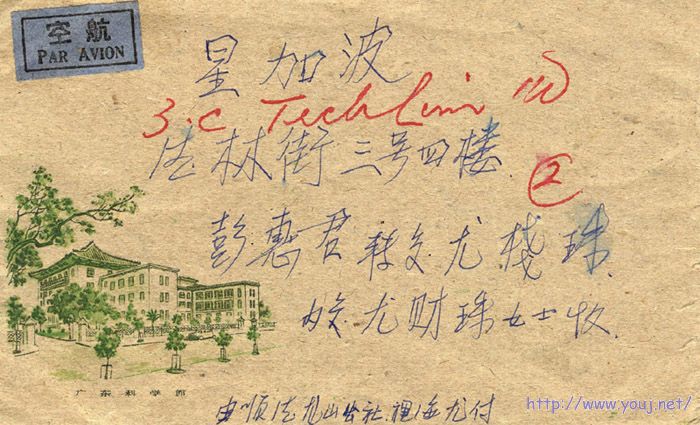 航空
PAR AVION
星加波
3.c Teck Lim
德林街三号四楼
2
彭惠君转交尤棧珠
交尤财珠女士收
广东科学馆
由顺德龙山公社 尤付
http://www.youj.net/